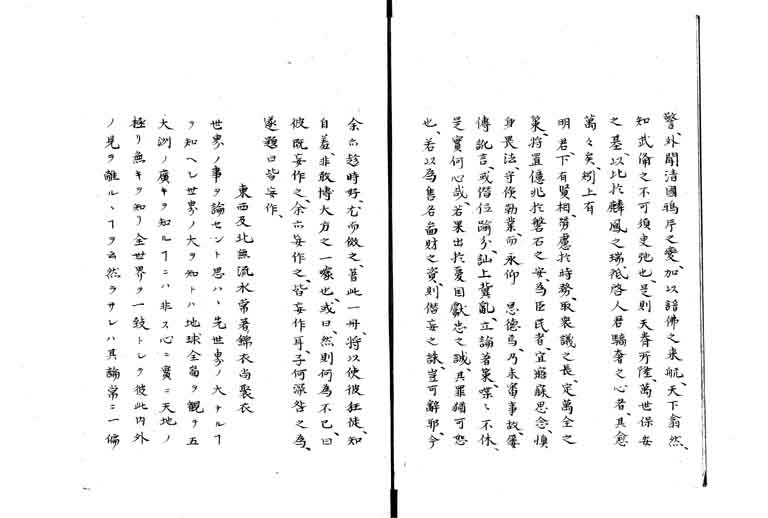 警、外聞清國鴉片之變、加以諳佛之来航、天下翕然、
知武備之不可須臾弛也、是則天眷所隆、萬世保安
之基、以比於麟鳳之瑞、祇啓人君驕奢之心者、其愈
萬々矣、矧上有
明君、下有賢相、勞慮於時務、取衆議之長、定萬全之
策、将置億兆於磐石之安、為臣民者、宜寤寐思念、慎
身畏法、守儉勤業、而永仰 恩徳焉、乃未審事故、屡
傳訛言、或僭位踰分、訕上冀亂、立論著策、喋々不休、
是實何心哉、若果出於憂国獻忠之誠、其罪猶可恕
也、若以為售名畜財之資、則僭妄之誅、豈可辭耶、今
余亦趁時好、尤而倣之、著此一冊、将以使彼狂徒、知
自羞、非敢博大方之一噱也、或曰、然則何為不已、曰
彼既妄作之、余亦妄作之、皆妄作耳、子何深咎之為、
遂題曰皆妄作、
東西及北無流水常著錦衣尚褧衣
世界ノ事ヲ論セント思ハヽ先世界ノ大ナルヿ
ヲ知ヘシ世界ノ大ヲ知トハ地球全圖ヲ観テ五
大洲ノ廣キヲ知ルヿニハ非ス心ニ實ニ天地ノ
極リ無キヲ知リ全世界ヲ一致トシテ彼此内外
ノ見ヲ離ルヽヿヲ云然ラサレハ其論常ニ一偏